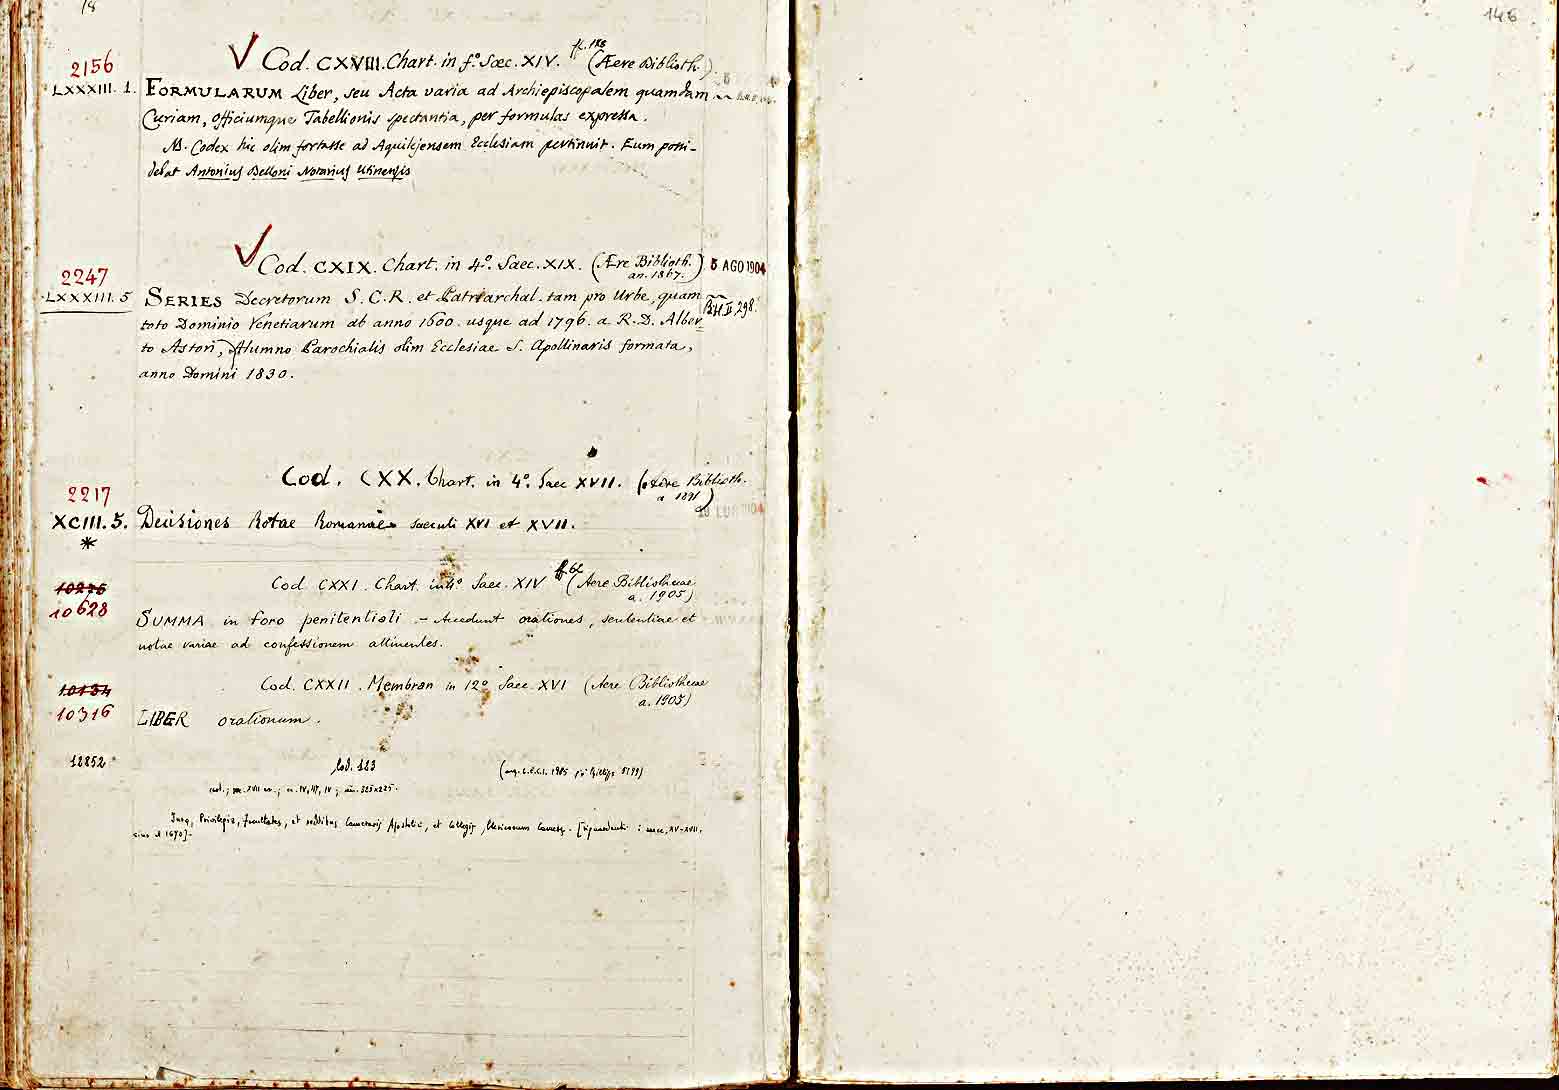 18
146
2156
Cod. CXVIII. Chart. in f.º Sæc. XIV. (Ære Biblioth.)
LXXXIII. 1. FORMULARUM Liber, seu Acta varia ad Archiepiscopalem quamdam
Curiam, officiumque Tabellionis spectantia, per formulas expressa.
NB. Codex hic olim fortasse ad Aquilejensem Ecclesiam pertinuit. Eum possi-
debat Antonius Belloni Notarius Utinensis
2247
Cod. CXIX. Chart. in 4º. Saec. XIX. (Ære Biblioth. an. 1867.)
5 AGO 1904
LXXXIII. 5 SERIES Decretorum S. C. R. et Patriarchal. tam pro Urbe, quam
toto Dominio Venetiarum ab anno 1600. usque ad 1796. a R. D. Alber=
to Astori, Alumno Parochialis olim Ecclesiae S. Apollinaris formata,
anno Domini 1830.
II, 298.
Cod. CXX. Chart. in 4º. Saec XVII. (Aere Biblioth. a 1891)
2217
XCIII. 5. Decisiones Rotae Romanae saeculi XVI et XVII.
*
Cod. CXXI. Chart. in 4º Saec. XIV (Aere Bibliothecae a. 1905)
10628
SUMMA in foro penitentiali - Accedunt orationes, sententiae et
notae variae ad confessionem attinentes.
Cod. CXXII. Membran in 12º Saec. XVI (Aere Bibliothecae a. 1905)
10316
LIBER orationum.
12852
Cod. 123
cart.; sec. XVII ex.; cc. IV,
Iura, Privilegia, facultates, et redditus Camerarii Apostolici, et Collegii Clericorum Camerae.